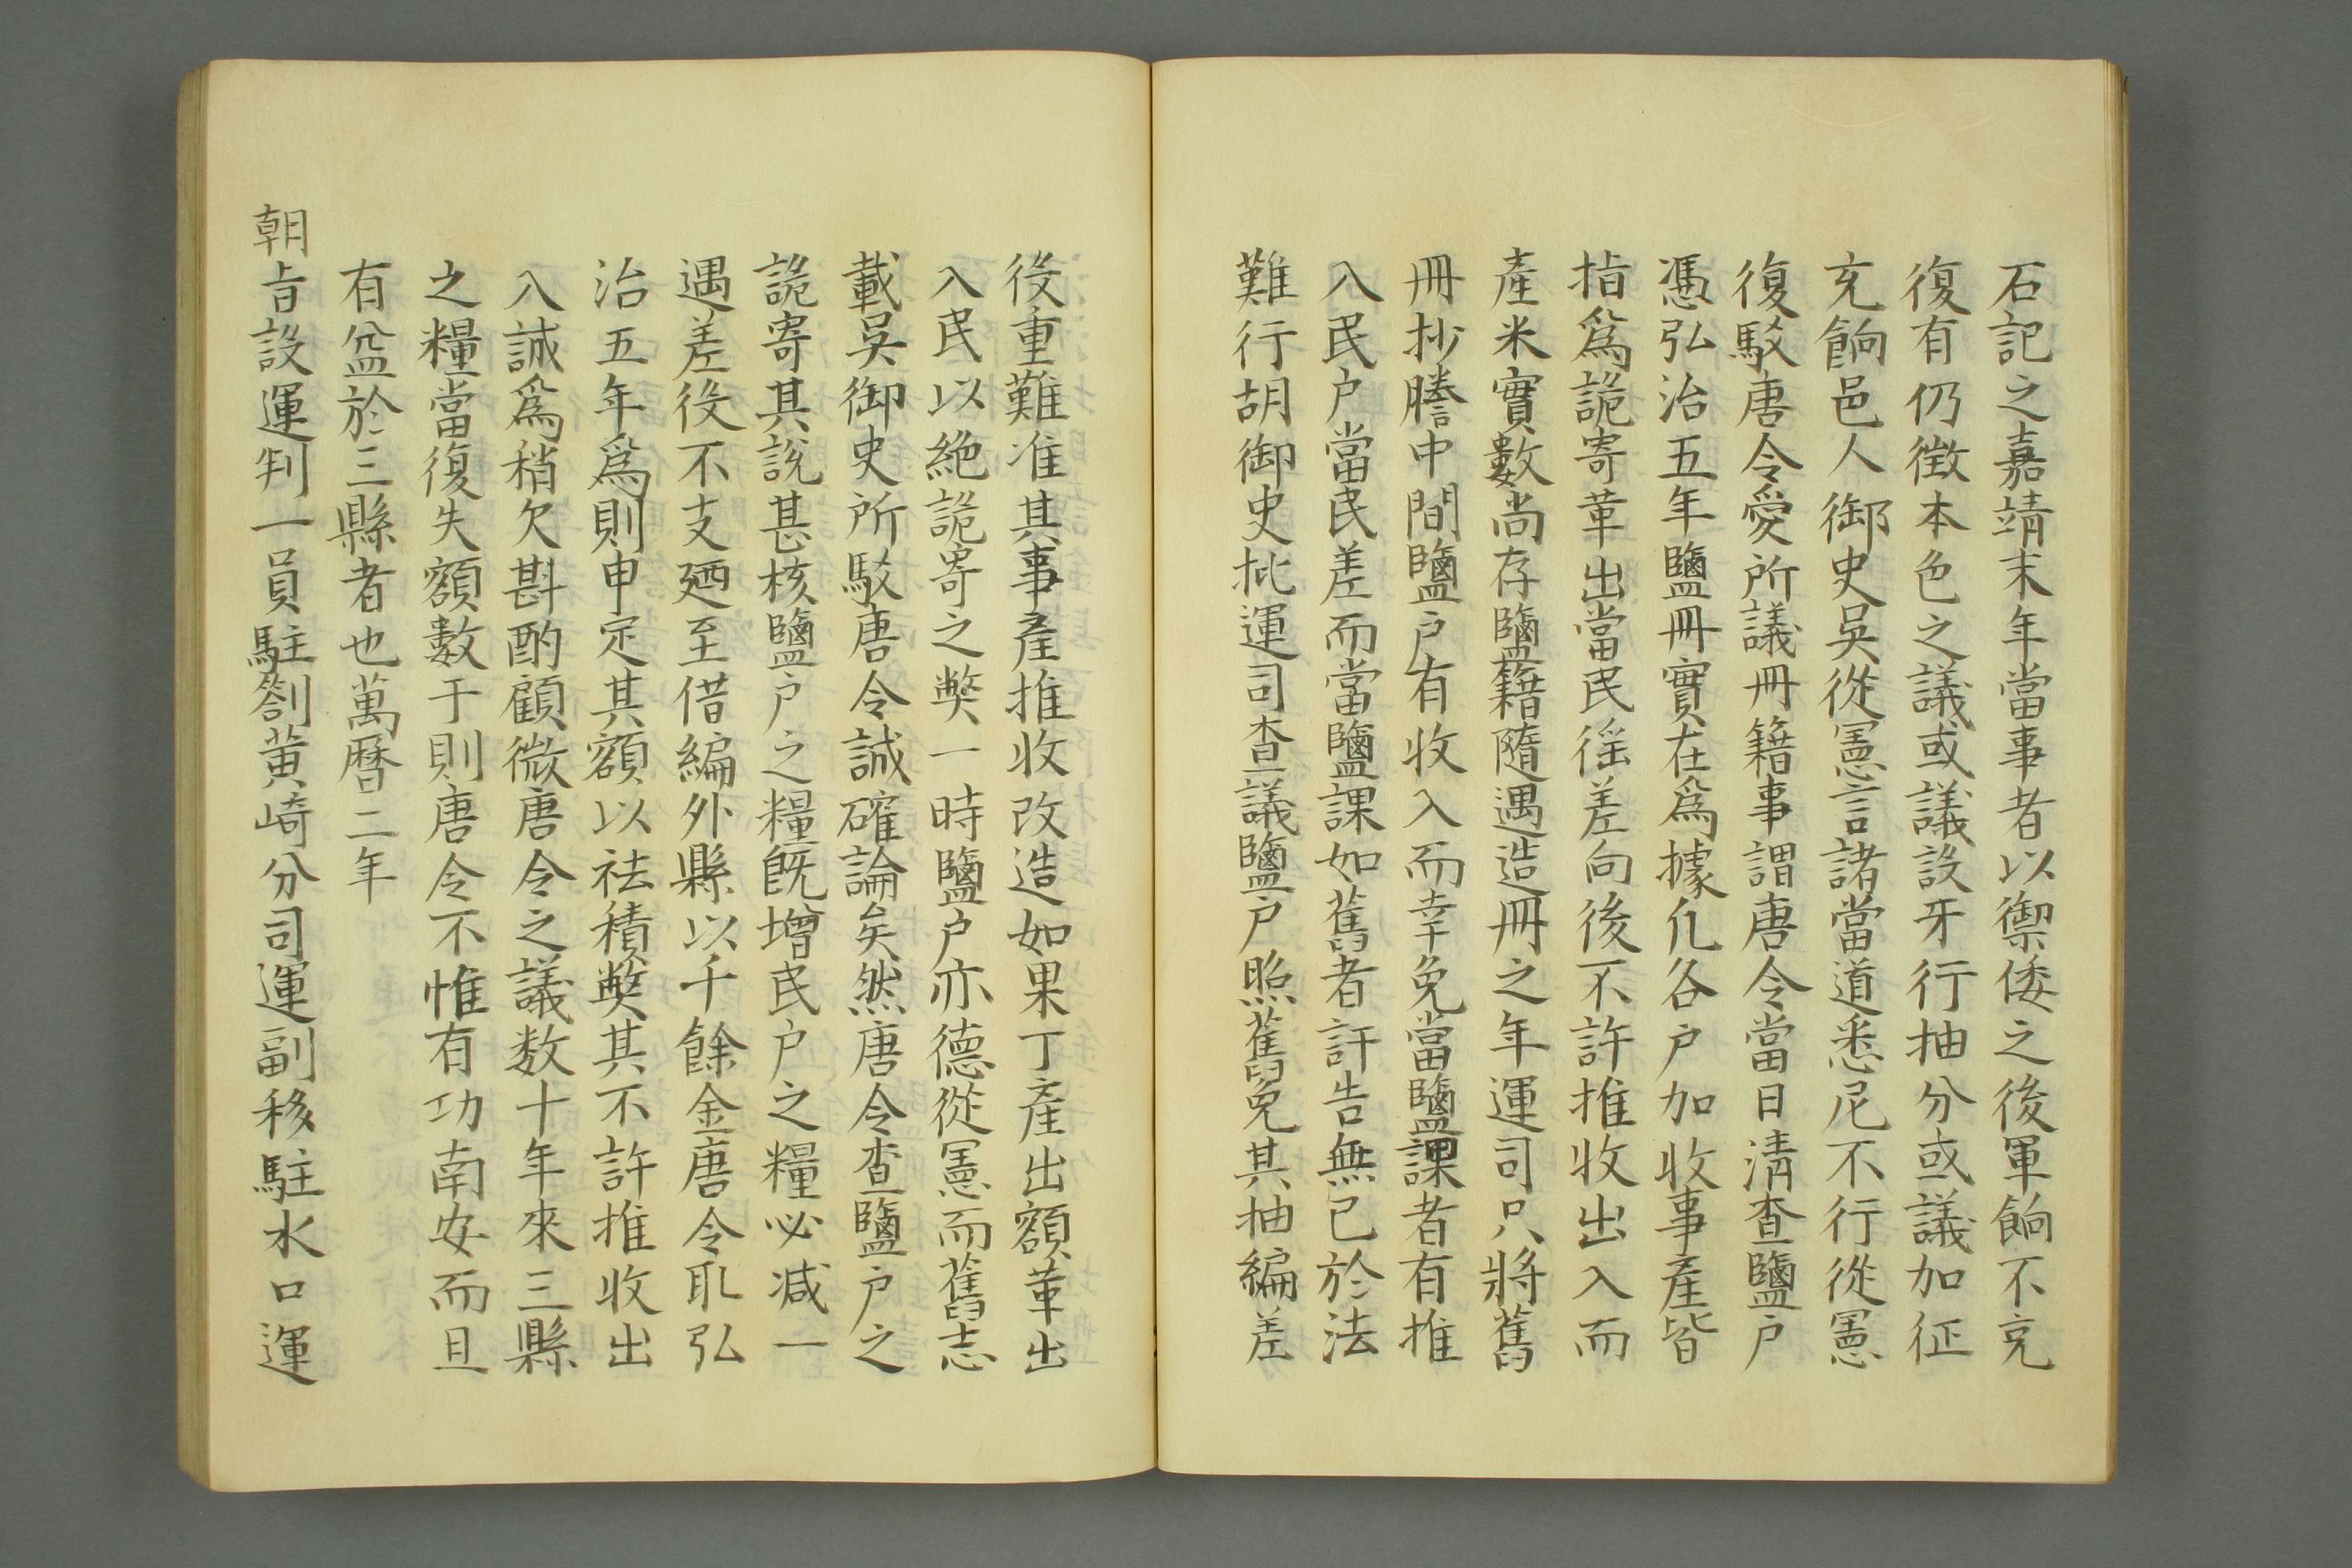 石記之嘉靖末年當事者以禦倭之後軍餉不充
復有仍徵本色之議或議設牙行抽分或議加征
充餉邑人御史吳從憲言諸當道悉尼不行從憲
復駁唐令愛所議冊籍事謂唐令當日清查鹽户
憑弘治五年鹽冊實在爲據凢各户加收事產皆
指爲詭寄革出當民徭差向後不許推收出入而
產米實數尚存鹽籍隨遇造冊之年運司只將舊
冊抄謄中間鹽户有收入而幸免當鹽課者有推
入民户當民差而當鹽課如舊者訐告無已於法
難行胡御史批運司查議鹽户照舊免其抽編差
役重難准其事產推收改造如果丁產出額革出
入民以絶詭寄之獘一時鹽户亦德從憲而舊志
載吳御史所駁唐令誠確論矣然唐令查鹽户之
詭寄其說甚核鹽户之糧旣增民户之糧必减一
遇差役不支廼至借編外縣以千餘金唐令㪽弘
治五年爲則申定其額以祛積獘其不許推收出
入誠爲稍欠斟酌顧微唐令之議数十年來三縣
之糧當復失額數于則唐令不惟有功南安而且
有益於三縣者也萬曆二年
朝㫖設運判一員駐劄黄崎分司運副移駐水口運